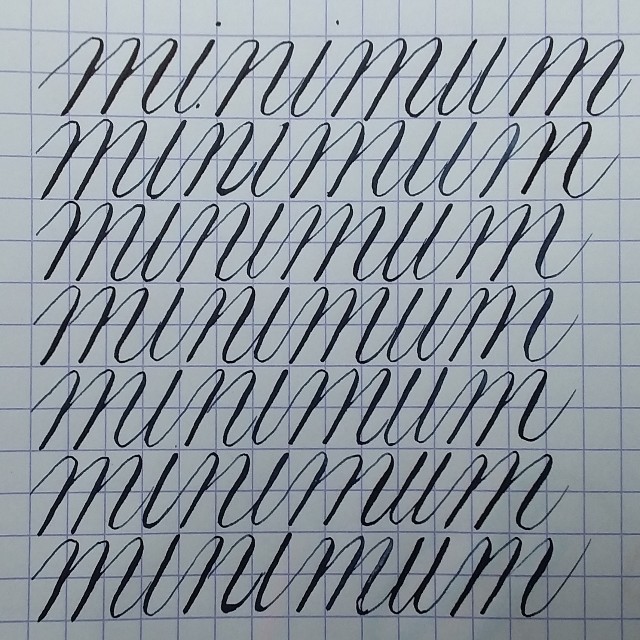 minimum
minimum
minimum
minimum
minimum
minimum
minimum